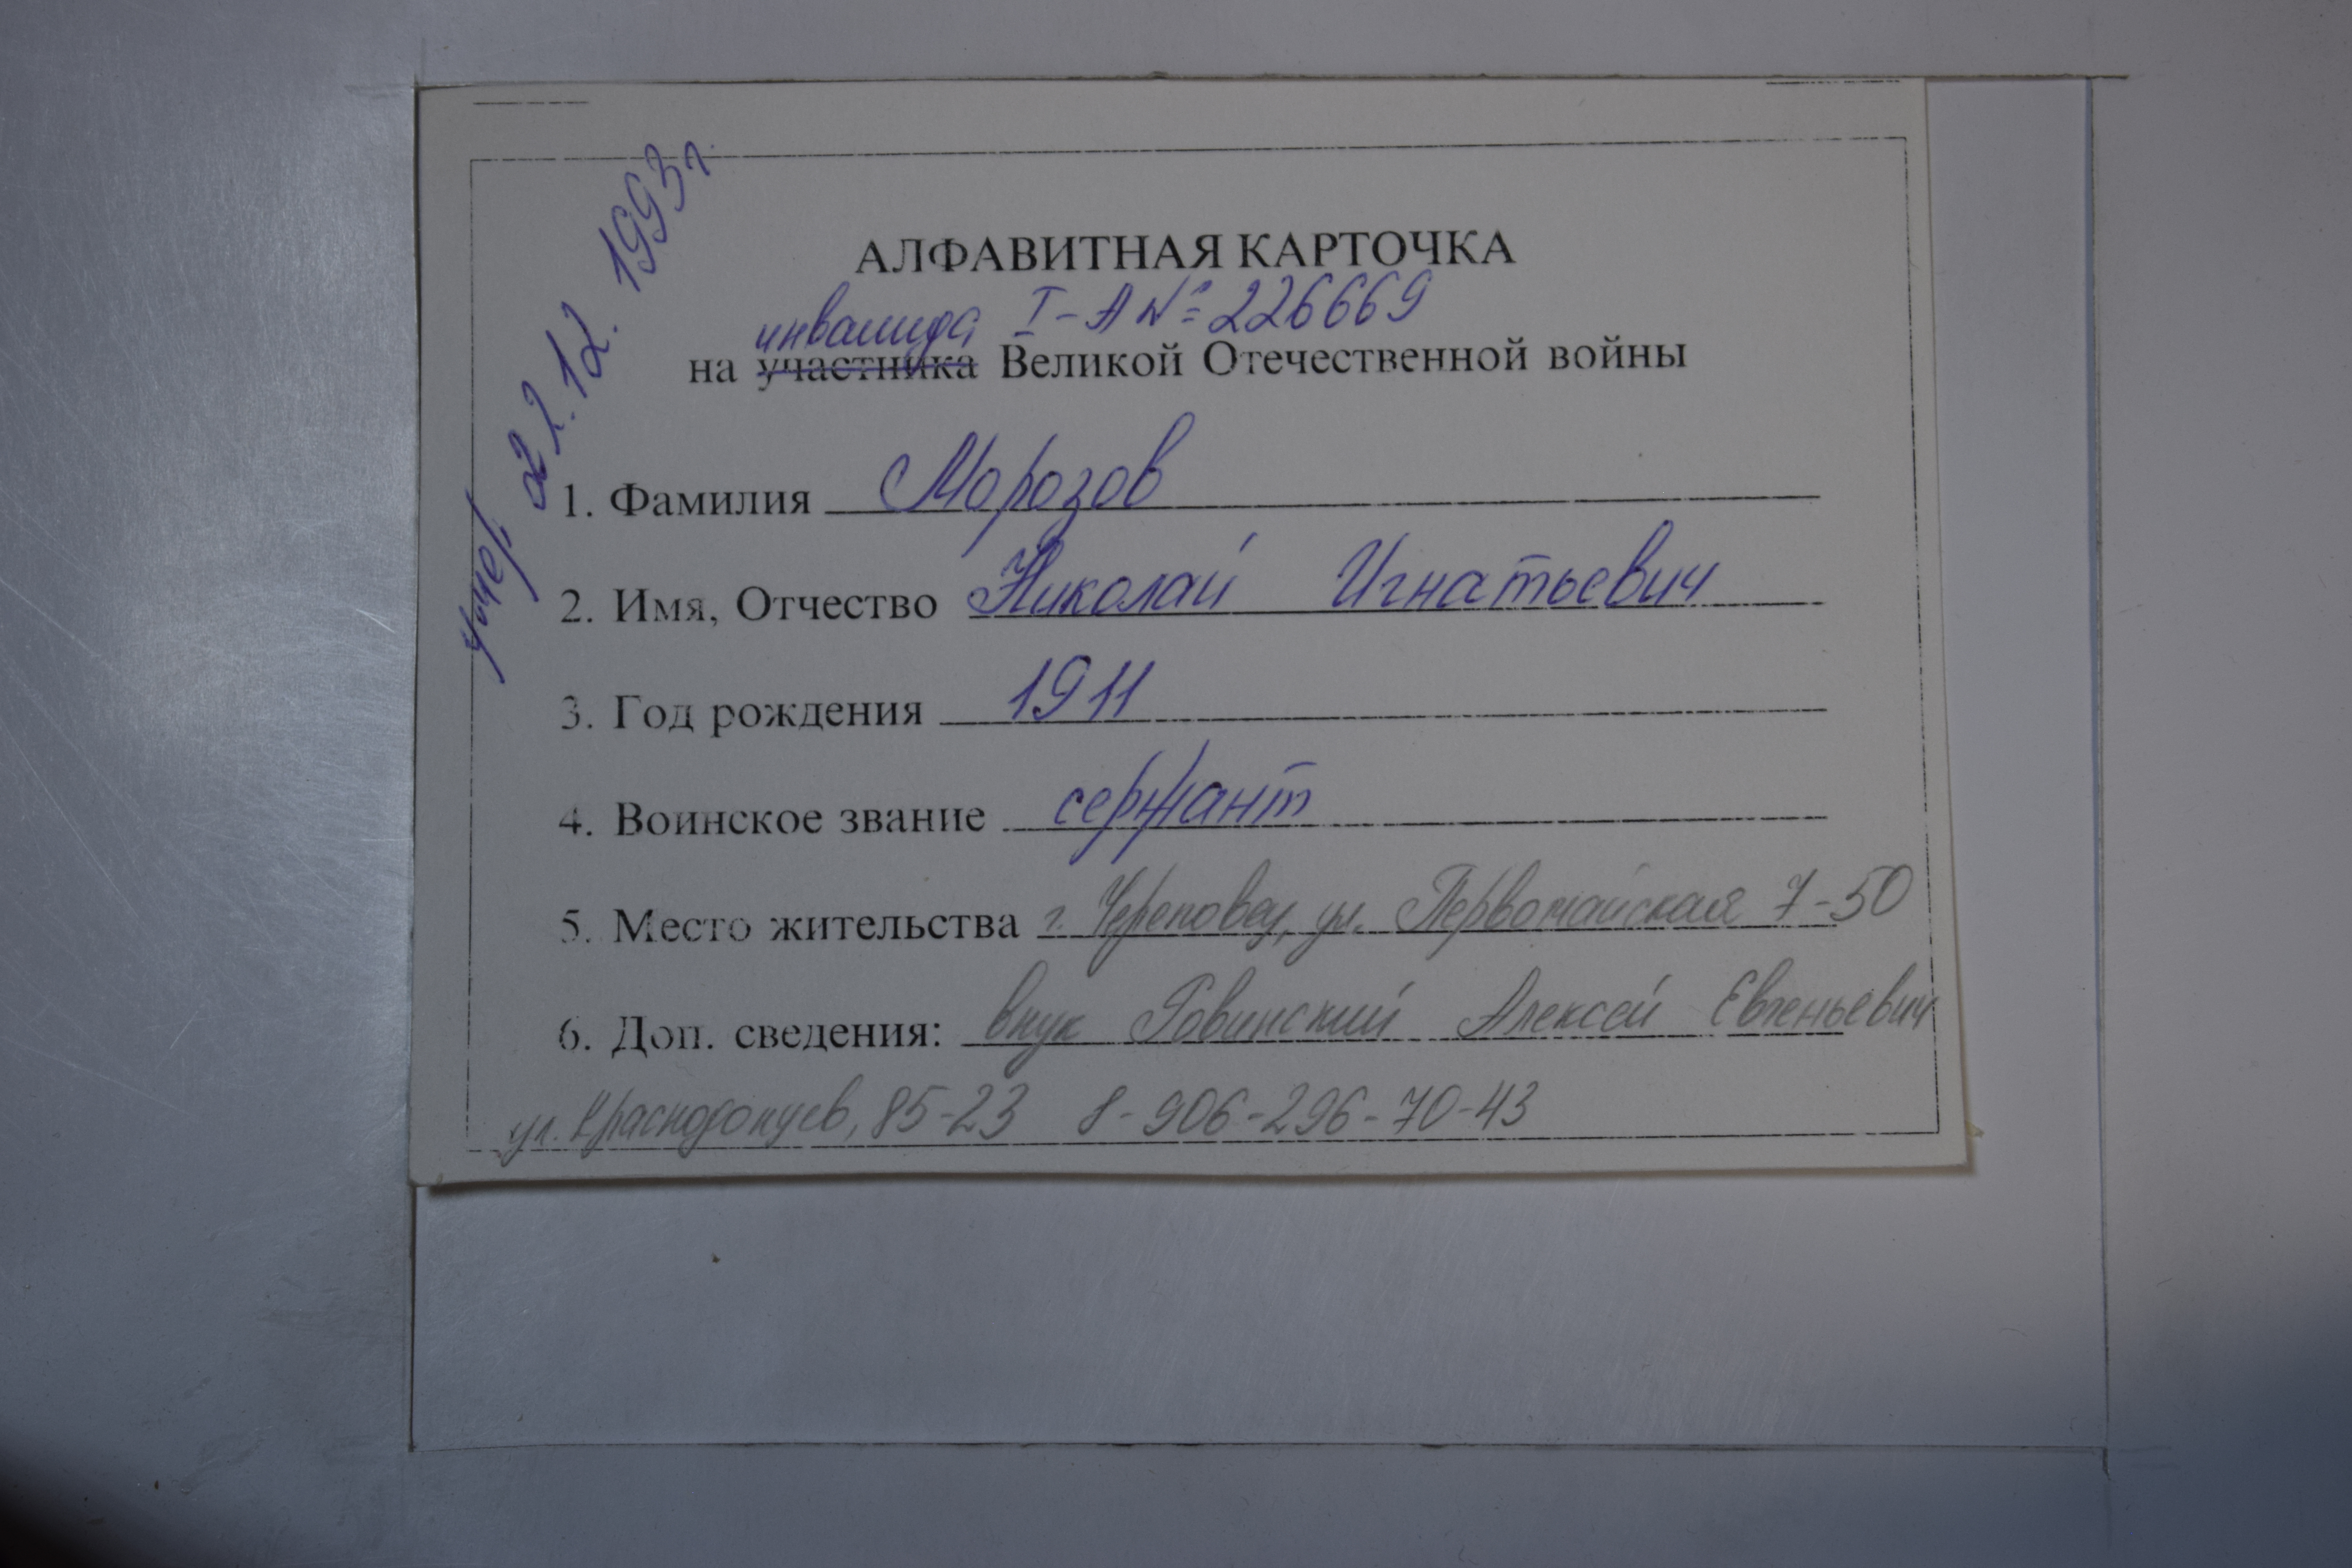 умер 22.12.1993г.
АЛФАВИТНАЯ КАРТОЧКА
инвалида I-А № 226669
на участника Великой Отечественной войны
1. Фамилия Морозов
2. Имя, Отчество Николай Игнатьевич
3. Год рождения 1911
4. Воинское звание сержант
5. Место жительства г. Череповец, ул. Первомайская 7-50
6. Доп. сведения: внук Ровинский Алексей Евгеньевич
ул. Краснодонцев, 85-23 8-906-296-70-43